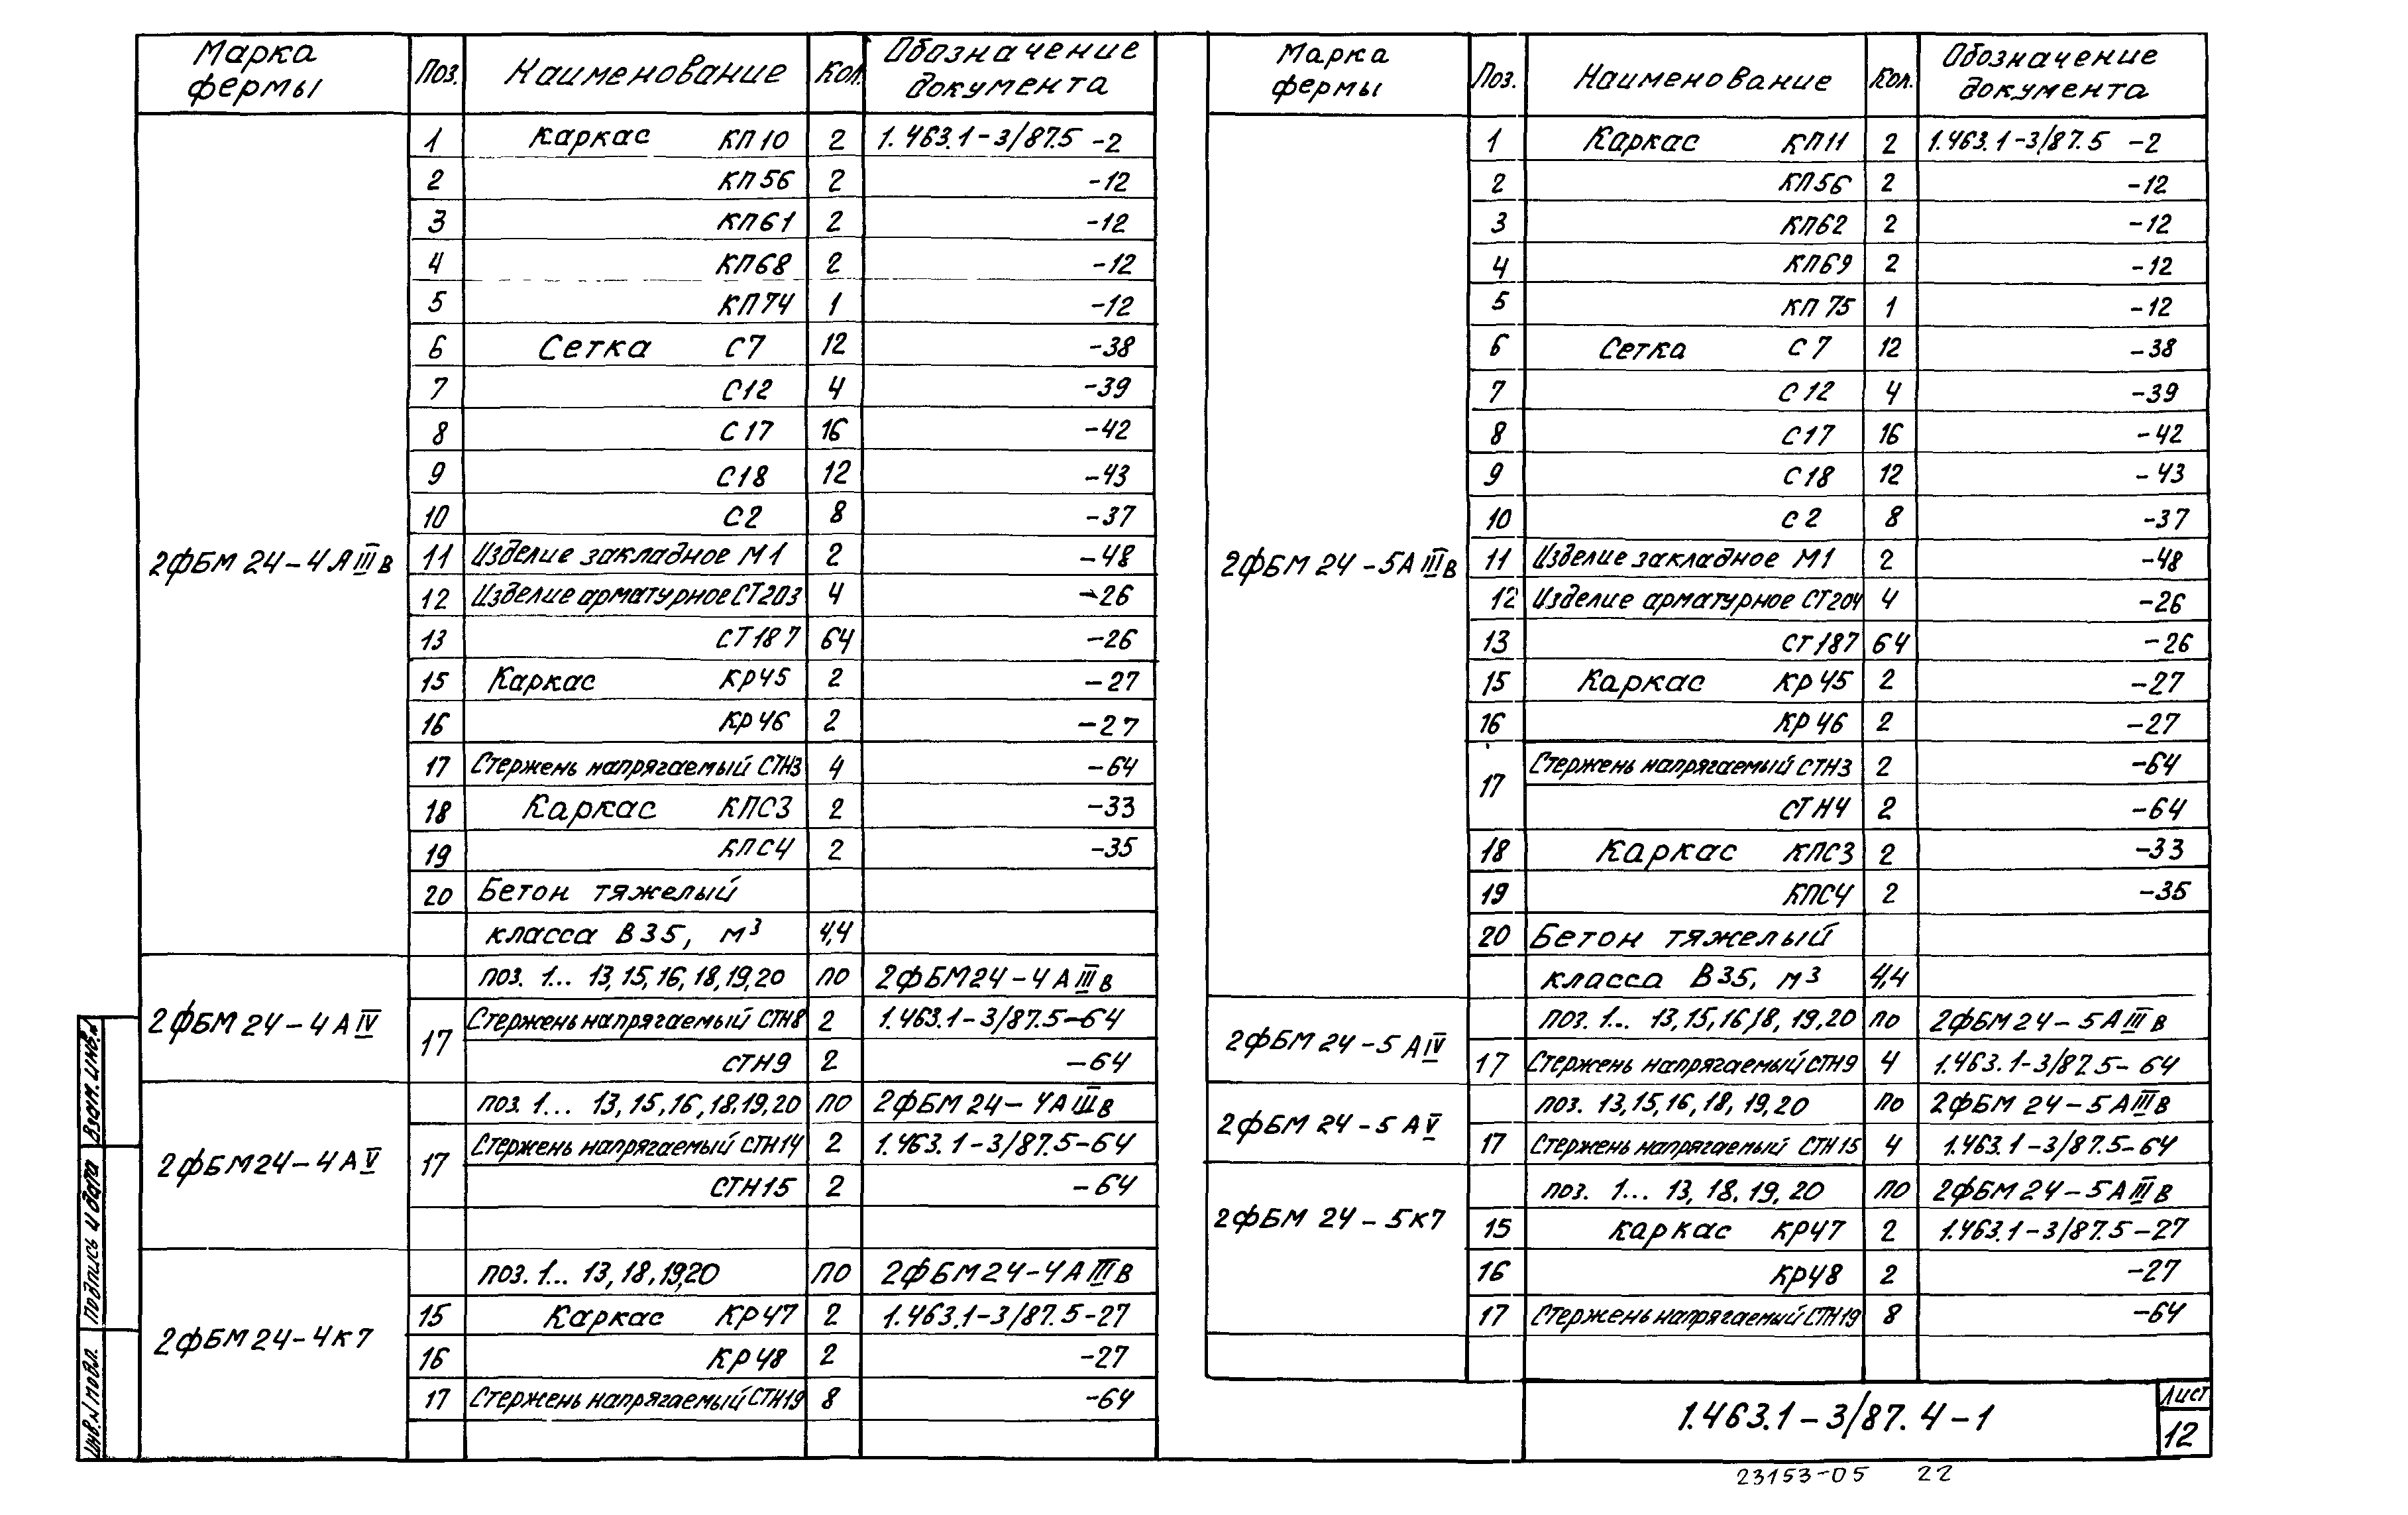 Марка фермы Поз. Наименование Кол. Обозначение документа
2фБМ 24-4АIIIв
1 Каркас КП10 2 1.463.1-3/87.5 -2
2 КП56 2 -12
3 КП61 2 -12
4 КП68 2 -12
5 КП74 1 -12
6 Сетка С7 12 -38
7 С12 4 -39
8 С17 16 -42
9 С18 12 -43
10 С2 8 -37
11 Изделие закладное М1 2 -48
12 Изделие арматурное СТ203 4 -26
13 СТ187 64 -26
15 Каркас КР45 2 -27
16 КР46 2 -27
17 Стержень напрягаемый СТН3 4 -64
18 Каркас КПС3 2 -33
19 КПС4 2 -35
20 Бетон тяжелый
класса В35, м³ 4,4
2фБМ 24-4АIV
поз. 1... 13,15,16,18,19,20 по 2фБМ24-4АIIIв
17 Стержень напрягаемый СТН8 2 1.463.1-3/87.5-64
СТН9 2 -64
2фБМ24-4АV
поз. 1... 13,15,16,18.19,20 по 2фБМ 24-4АIIIв
17 Стержень напрягаемый СТН14 2 1.463.1-3/87.5-64
СТН15 2 -64
2фБМ24-4к7
поз. 1... 13,18,19,20 по 2фБМ24-4АIIIв
15 Каркас КР47 2 1.463.1-3/87.5-27
16 КР48 2 -27
17 Стержень напрягаемый СТН19 8 -64
Марка фермы Поз. Наименование Кол. Обозначение документа
2фБМ 24-5АIIIв
1 Каркас КП11 2 1.463.1-3/87.5 -2
2 КП56 2 -12
3 КП62 2 -12
4 КП69 2 -12
5 КП75 1 -12
6 Сетка С7 12 -38
7 С12 4 -39
8 С17 16 -42
9 С18 12 -43
10 С2 8 -37
11 Изделие закладное М1 2 -48
12 Изделие арматурное СТ204 4 -26
13 СТ187 64 -26
15 Каркас КР45 2 -27
16 КР46 2 -27
17 Стержень напрягаемый СТН3 2 -64
СТН4 2 -64
18 Каркас КПС3 2 -33
19 КПС4 2 -35
20 Бетон тяжелый
класса В35, м³ 4,4
2фБМ 24-5АIV
поз. 1... 13,15,16,18, 19,20 по 2фБМ24-5АIIIв
17 Стержень напрягаемый СТН9 4 1.463.1-3/87.5-64
2фБМ 24-5АV
поз. 13,15,16,18, 19,20 по 2фБМ 24-5АIIIв
17 Стержень напрягаемый СТН15 4 1.463.1-3/87.5-64
2фБМ 24-5к7
поз. 1... 13,18,19,20 по 2фБМ24-5АIIIв
15 Каркас КР47 2 1.463.1-3/87.5-27
16 КР48 2 -27
17 Стержень напрягаемый СТН19 8 -64
1.463.1-3/87.4-1
Лист
12
23153-05 22
Взам. инв.№
Подпись и дата
Инв.№подл.